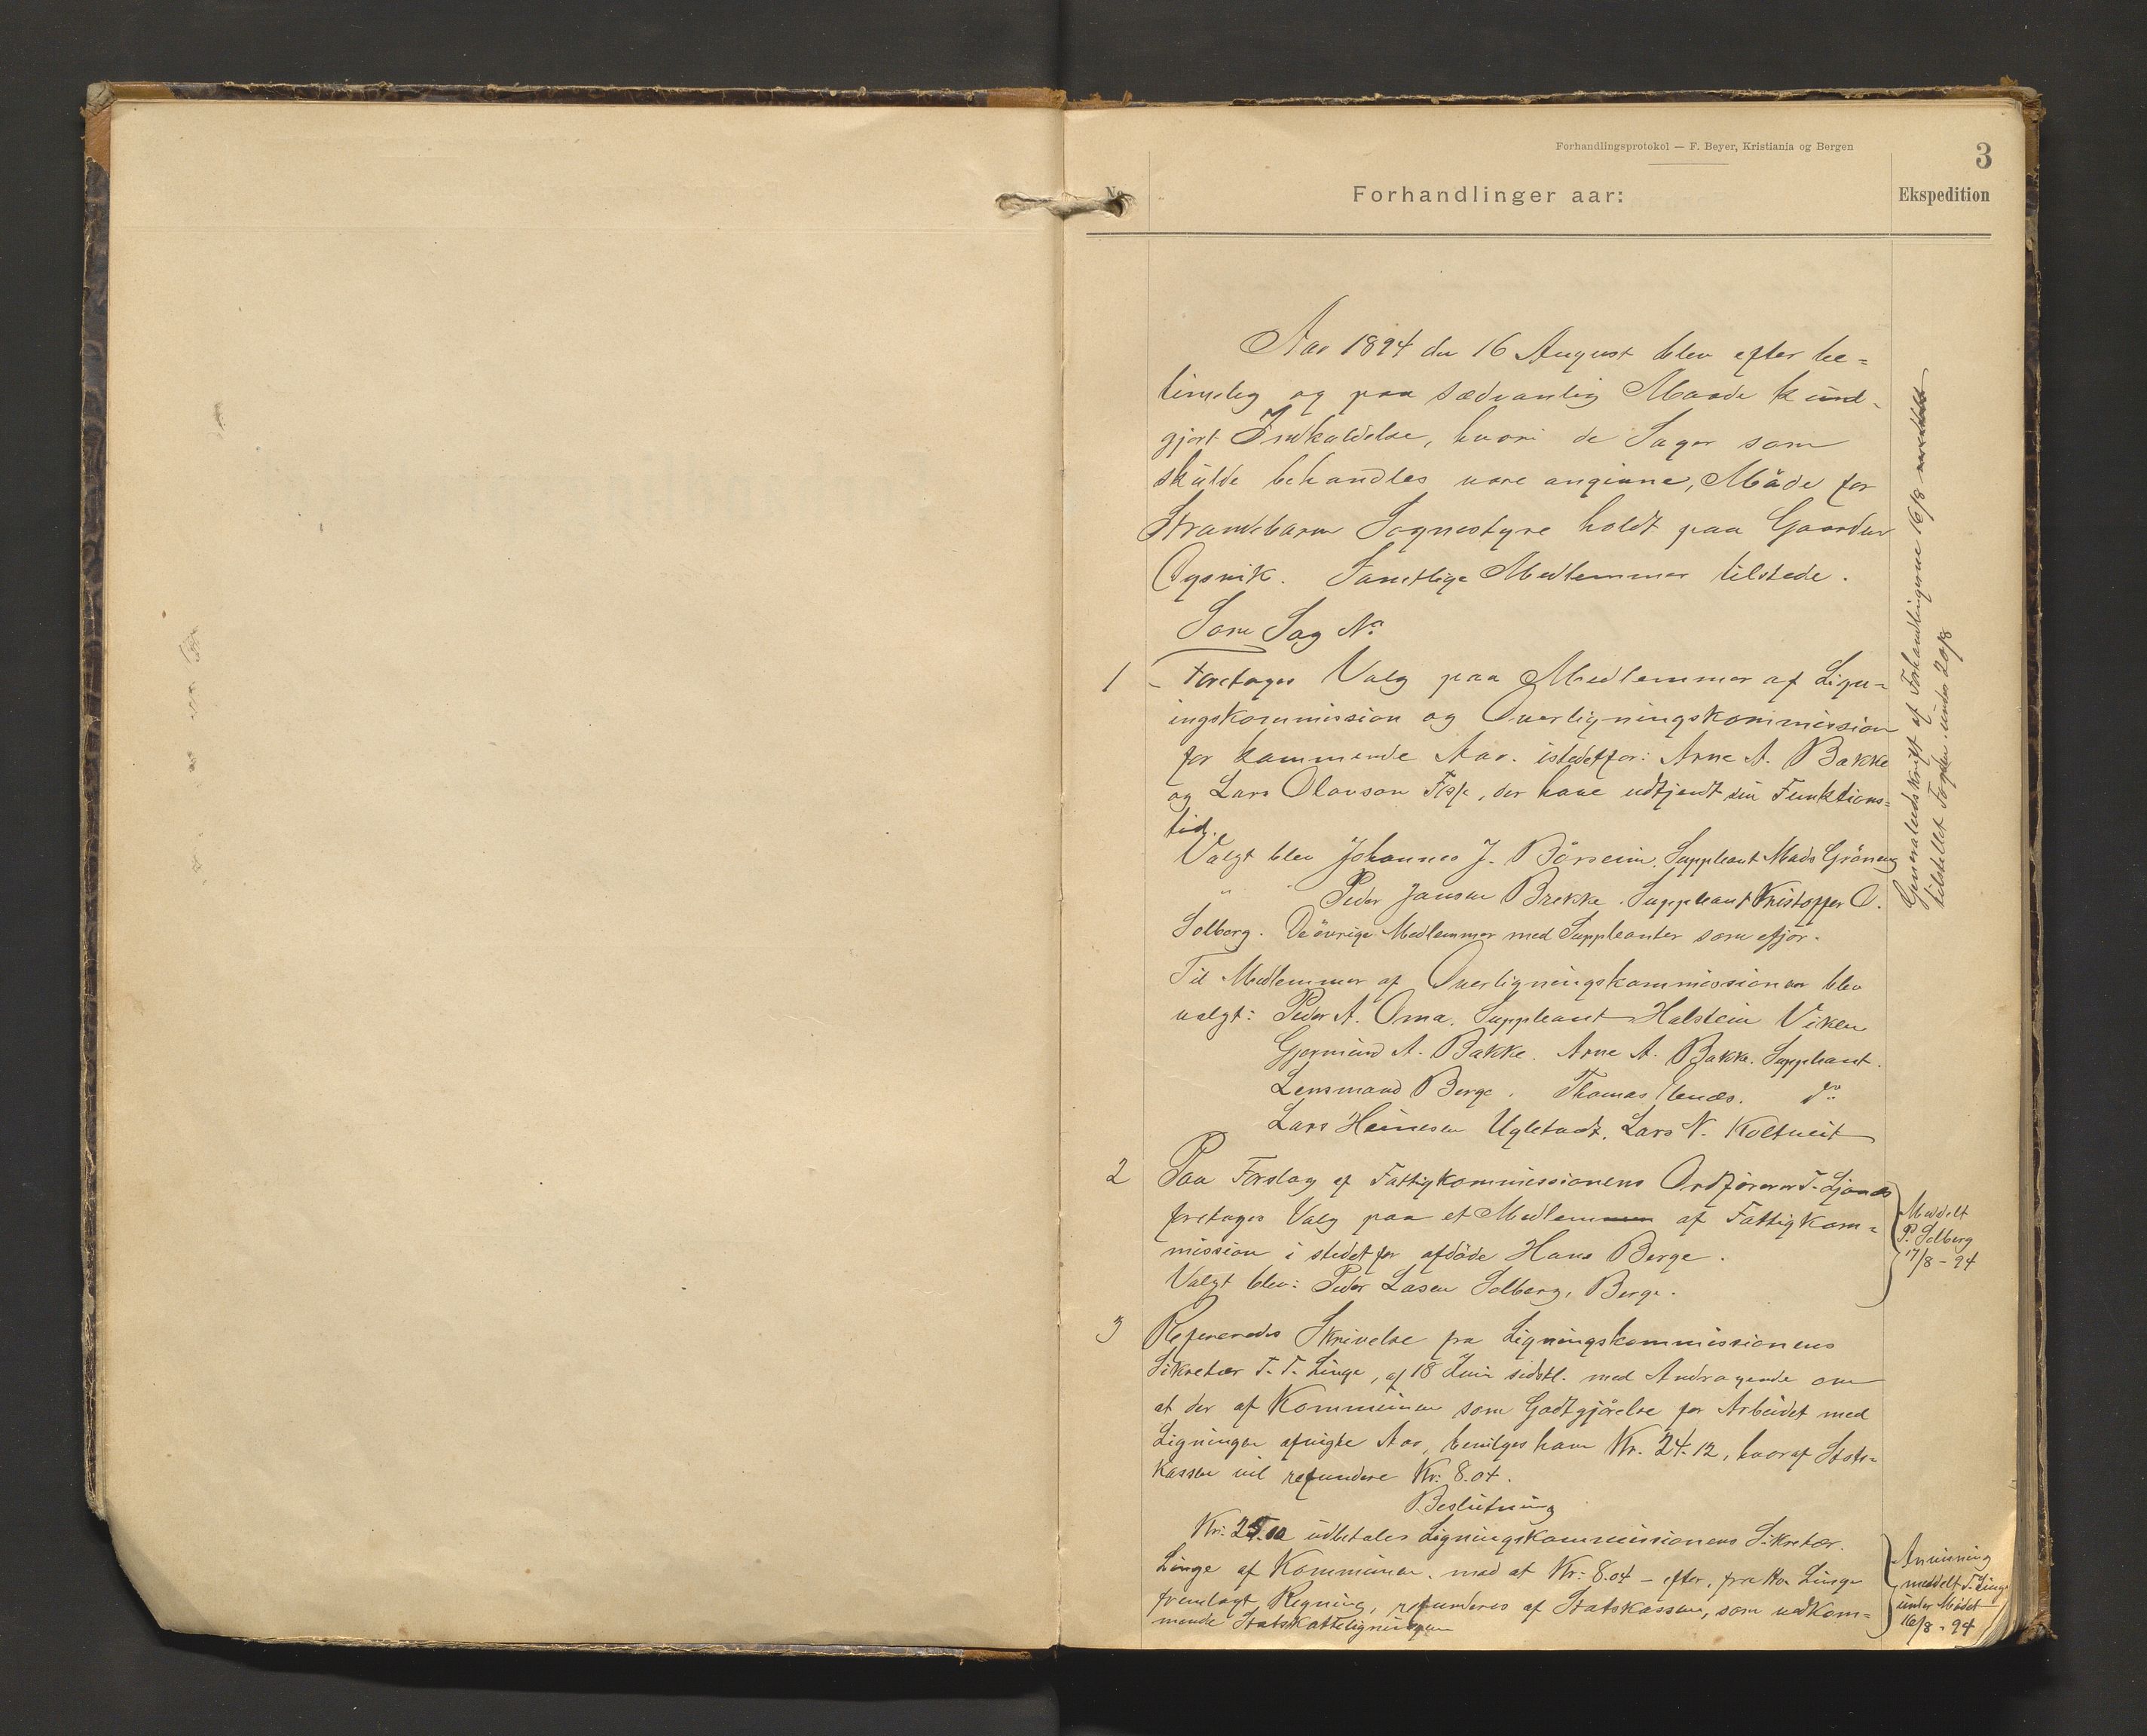 Forhandlingsprotokol — F. Beyer, Kristiania og Bergen
3
No
Forhandlinger aar:
Ekspedition
Aar 1894 den 16 August blev efter be=
timelig og paa sædvanlig Maade kund-
gjort Indkaldelse, hvori de Sager som
skulde behandles vare angivne, Möde for
Strandebarm Sognestyre holdt paa Gaarden
Oysvik. Samtlige Medlemmer tilstede.
Som Sag No
1 - Foretages Valg paa Medlemmer af Lign-
ingskommission og Overligningskommission
for kommende Aar. istedetfor: Arne A. Bakke
og Lars Olavson Fosse, der have udtjendt sin Funktions=
tid.
Valgt blev Johannes J. Börseim. Suppleant Mads Gröneng
" " Peder Jansen Brekke. Suppleant Kristoffer O.
Solberg. De övrige Medlemmer med Suppleanter som ifjor.
Til Medlemmer af Overligningskommissionen blev
valgt: Peder A. Oma. Suppleant Halstein Viken
Gjermund A. Bakke. Arne A. Bakke. Suppleant.
Lensmand Berge. Thomas do
Lars Heinesen Uglstadt. Lars N. Koltveit
2 Paa Forslag af Fattigkommissionens Ordförerer T. Ljones
foretages Valg paa et Medlemmen af Fattigkom=
mission i stedet for afdöde Hans Berge.
Valgt blev: Peder Lasen Solberg, Berge.
3 Refereredes Skrivelse fra Ligningskommissionens
Sikretær T. T. Linge, af 18 Juni sidstl. med Andragende om
at der af Kommunen som Godtgjörelse for Arbeidet med
Ligningen afvigte Aar, bevilges ham Kr. 24.12, hvoraf Stats=
kassen vil refundere Kr: 8.04.
Beslutning
Kr: udbetales Ligningskommissionens Sikretær.
Linge af Kommunen. mod at Kr: 8.04 - efter, fra Hr. Linge
fremlagt Regning, refunderes af Statskassen, som vedkom=
mende Statsskatteligningen
Generaludskrift af Forhandlingerne 16/8 meddelt
tilstillet Fogden under 20/8
Meddelt
P. Solberg
17/8 - 94
Anvisning
meddelt T. Linge
under Mödet
16/8 - 94